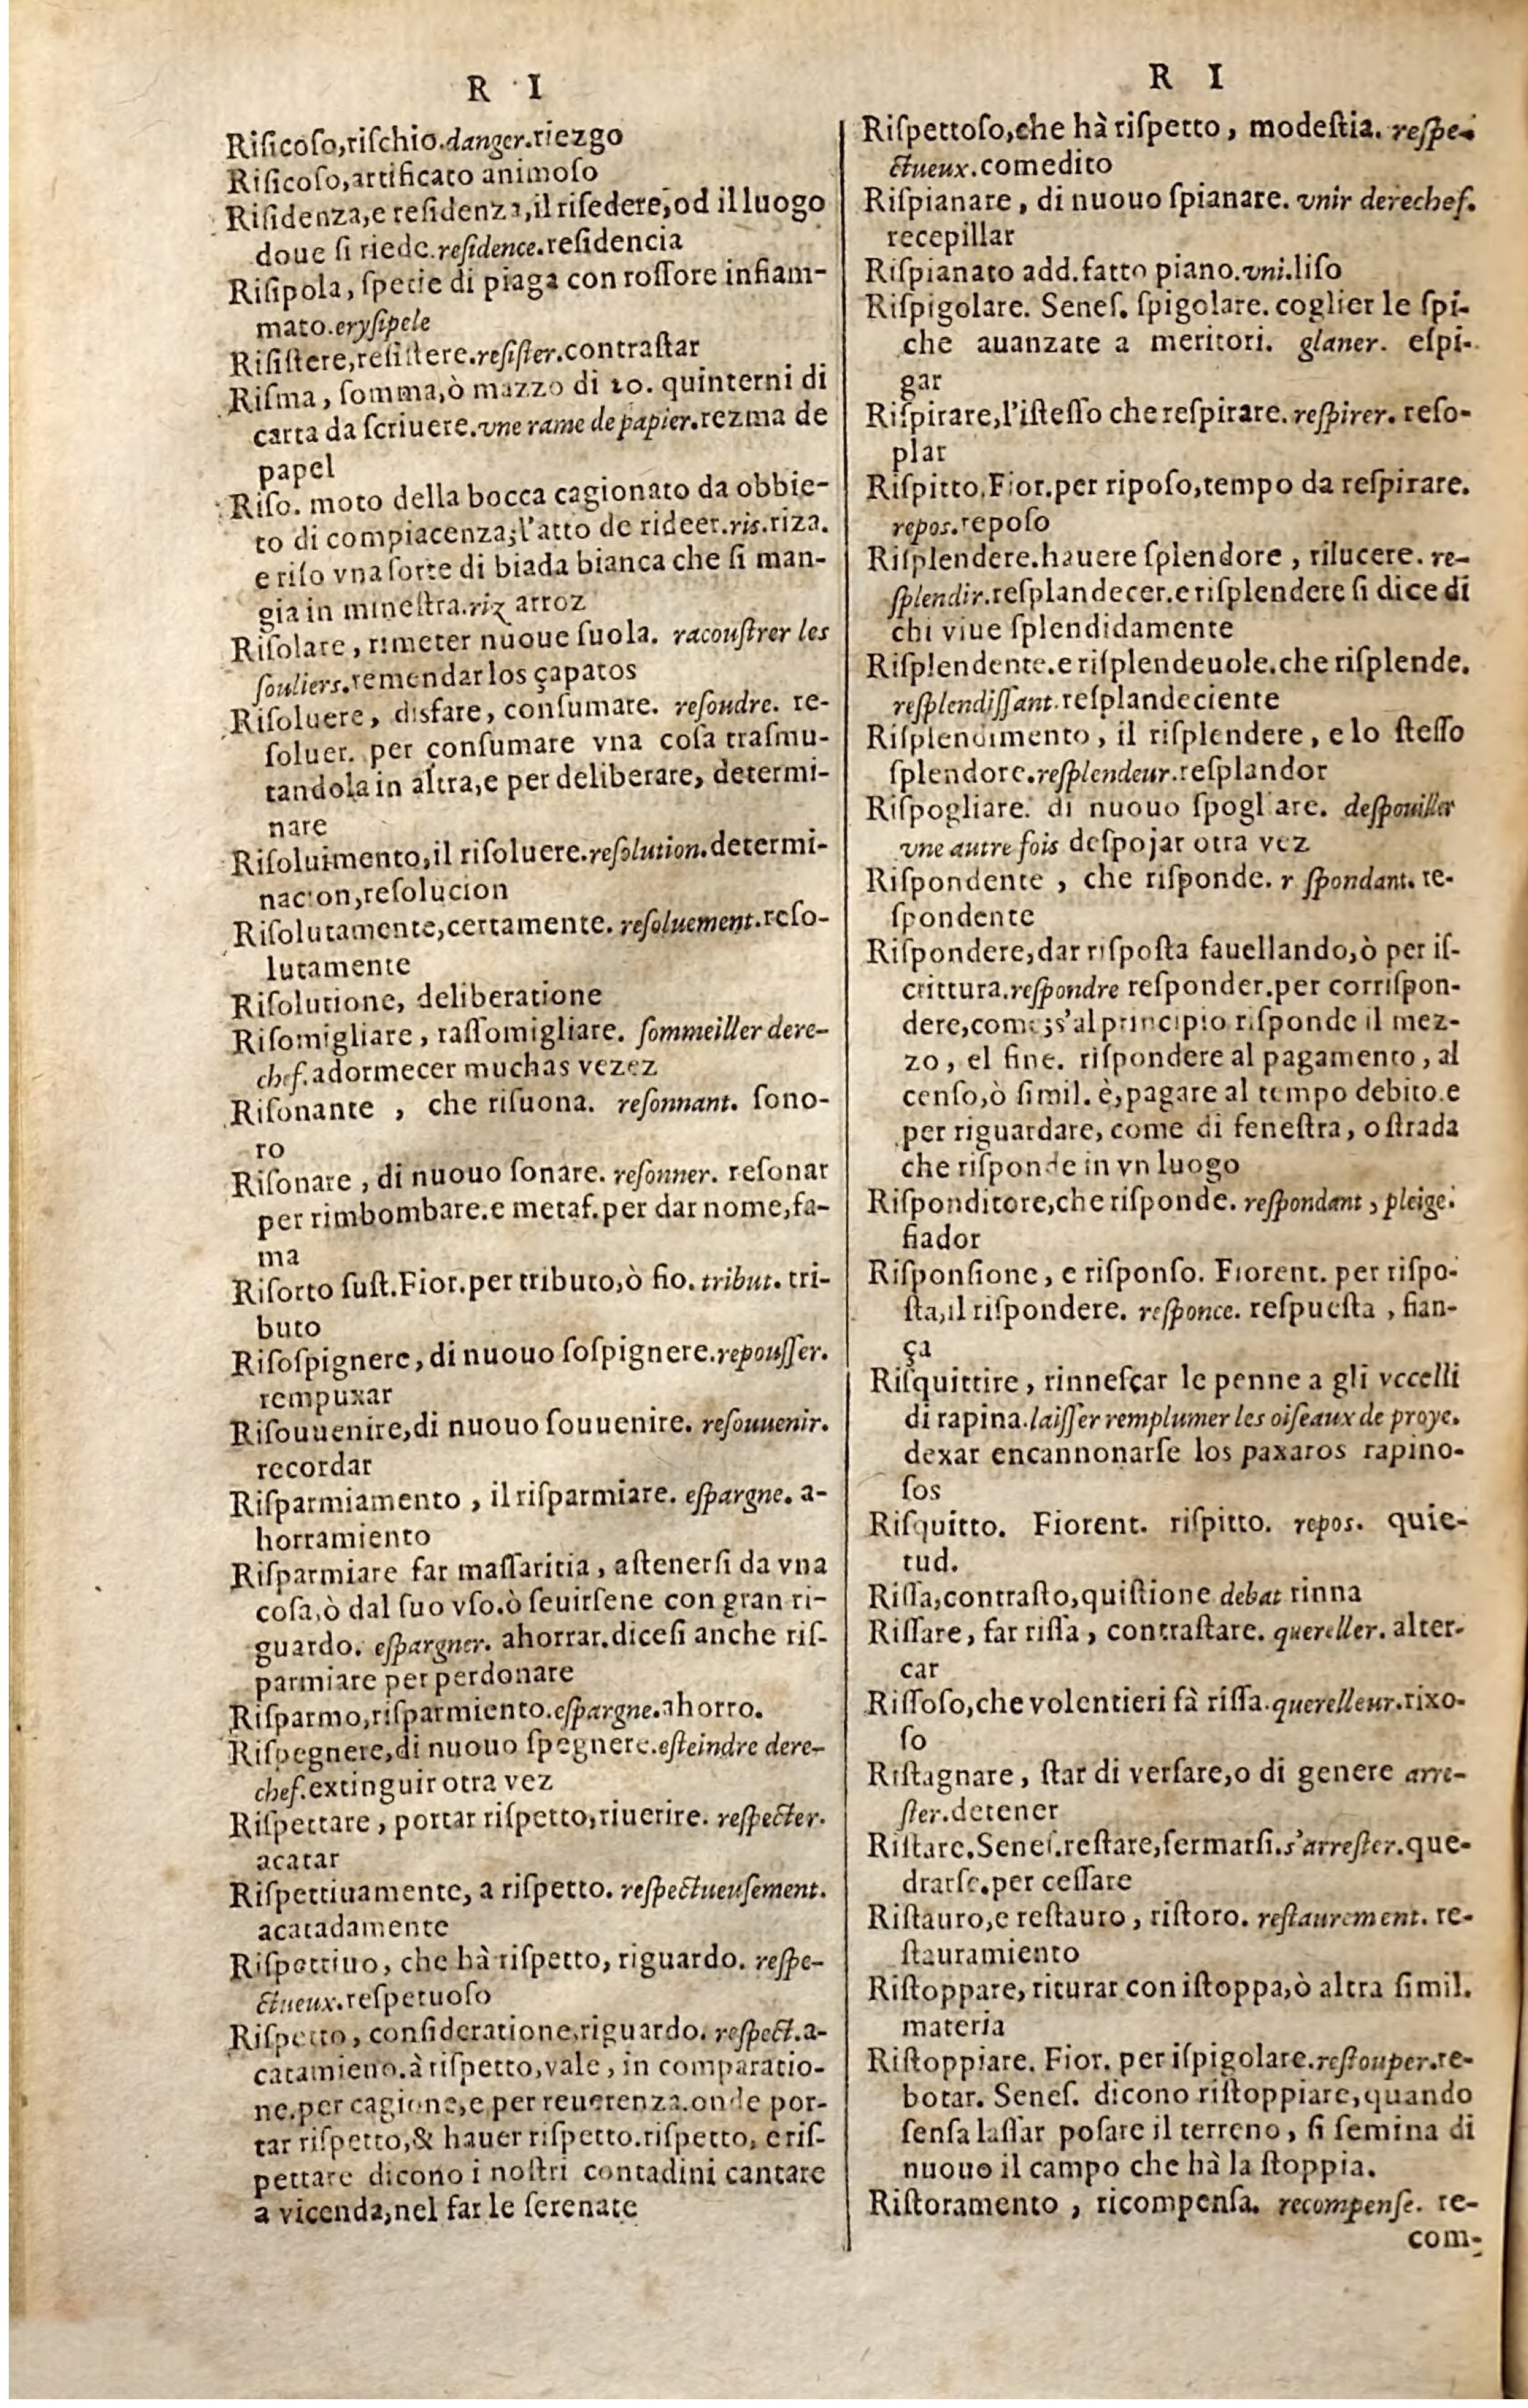 R I
Riſicoſo,riſchio.danger.riezgo
Riſicoſo,artificato animoſo
Riſidenza,e reſidenza,il riſedere,od il luogo
doue ſi riede.reſidence.reſidencia
Riſipola, ſpetie di piaga con roſſore infiam-
mato.eryſipele
Riſiſtere,reſiſtere.reſiſter.contraſtar
Riſma, ſomma,ò mazzo di 20. quinterni di
carta da ſcriuere.vne rame de papier.rezma de
papel
Riſo. moto della bocca cagionato da obbie-
to di compiacenza;l'atto de rideer.ris.riza.
e riſo vna ſorte di biada bianca che ſi man-
gia in mineſtra.riz arroz
Riſolare, rimeter nuoue ſuola. racouſtrer les
ſouliers.remendar los çapatos
Riſoluere, disfare, conſumare. reſoudre. re-
ſoluer. per conſumare vna coſa traſmu-
tandola in altra,e per deliberare, determi-
nare
Riſoluimento,il riſoluere.reſolution.determi-
nacion,reſolucion
Riſolutamente,certamente. reſoluement.reſo-
lutamente
Riſolutione, deliberatione
Riſomigliare, raſſomigliare. ſommeiller dere-
chef.adormecer muchas vezez
Riſonante , che riſuona. reſonnant. ſono-
ro
Riſonare , di nuouo ſonare. reſonner. reſonar
per rimbombare.e metaf.per dar nome,fa-
ma
Riſorto ſuſt.Fior.per tributo,ò fio. tribut. tri-
buto
Riſoſpignere, di nuouo ſoſpignere.repouſſer.
rempuxar
Riſouuenire,di nuouo ſouuenire. reſouuenir.
recordar
Riſparmiamento , il riſparmiare. eſpargne. a-
horramiento
Riſparmiare far maſſaritia, aſtenerſi da vna
coſa,ò dal ſuo vſo.ò ſeuirſene con gran ri-
guardo. eſpargner. ahorrar.diceſi anche riſ-
parmiare per perdonare
Riſparmo,riſparmiento.eſpargne.ahorro.
Riſpegnere,di nuouo ſpegnere.eſteindre dere-
chef.extinguir otra vez
Riſpettare, portar riſpetto,riuerire. reſpecter.
acatar
Riſpettiuamente, a riſpetto. reſpectueuſement.
acatadamente
Riſpettiuo, che hà riſpetto, riguardo. reſpe-
ctueux.reſpetuoſo
Riſpetto, conſideratione,riguardo. reſpect.a-
catamieno.à riſpetto,vale, in comparatio-
ne.per cagione,e per reuerenza.onde por-
tar riſpetto,& hauer riſpetto.riſpetto, e riſ-
pettare dicono i noſtri contadini cantare
a vicenda,nel far le ſerenate
R I
Riſpettoſo,che hà riſpetto, modeſtia. reſpe-
ctueux.comedito
Riſpianare, di nuouo ſpianare. vnir derechef.
recepillar
Riſpianato add.fatto piano.vni.liſo
Riſpigolare. Seneſ. ſpigolare. coglier le ſpi-
che auanzate a meritori. glaner. eſpi-
gar
Riſpirare,l'iſteſſo che reſpirare. reſpirer. reſo-
plar
Riſpitto.Fior.per ripoſo,tempo da reſpirare.
repos.repoſo
Riſplendere.hauere ſplendore, rilucere. re-
ſplendir.reſplandecer.e riſplendere ſi dice di
chi viue ſplendidamente
Riſplendente.e riſplendeuole.che riſplende.
reſplendiſſant.reſplandeciente
Riſplendimento, il riſplendere, e lo ſteſſo
ſplendore.reſplendeur.reſplandor
Riſpogliare. di nuouo ſpogl are. deſpouiller
vne autre fois deſpojar otra vez
Riſpondente , che riſponde. r ſpondant. re-
ſpondente
Riſpondere,dar riſpoſta fauellando,ò per iſ-
crittura.reſpondre reſponder.per corriſpon-
dere,come;s'al principio riſponde il mez-
zo, el fine. riſpondere al pagamento, al
cenſo,ò ſimil. è,pagare al tempo debito.e
per riguardare, come di feneſtra, o ſtrada
che riſponde in vn luogo
Riſponditore,che riſponde. reſpondant, pleige.
fiador
Riſponſione, e riſponſo. Fiorent. per riſpo-
ſta,il riſpondere. reſponce. reſpueſta , fian-
ça
Riſquittire, rinneſcar le penne a gli vccelli
di rapina.laiſſer remplumer les oiſeaux de proye.
dexar encannonarſe los paxaros rapino-
ſos
Riſquitto. Fiorent. riſpitto. repos. quie-
tud.
Riſſa,contraſto,quiſtione debat rinna
Riſſare, far riſſa, contraſtare. quereller. alter-
car
Riſſoſo,che volentieri fà riſſa.querelleur.rixo-
ſo
Riſtagnare, ſtar di verſare,o di genere arre-
ſter.detener
Riſtare.Seneſ.reſtare,fermarſi.s'arreſter.que-
drarſe.per ceſſare
Riſtauro,e reſtauro, riſtoro. reſtaurement. re-
ſtauramiento
Riſtoppare, riturar con iſtoppa,ò altra ſimil.
materia
Riſtoppiare. Fior. per iſpigolare.reſtouper.re-
botar. Seneſ. dicono riſtoppiare,quando
ſenſa laſſar poſare il terreno, ſi ſemina di
nuouo il campo che hà la ſtoppia.
Riſtoramento , ricompenſa. recompenſe. re-
com-